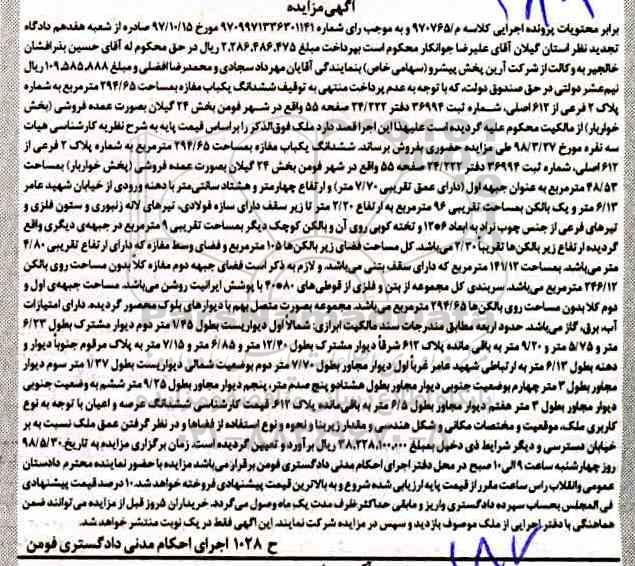 آگهی مزایده
برابر محتویات پرونده اجرایی کلاسه م/۹۷۰۷۶۵ و به موجب رای شماره ۹۷۰۹۹۷۱۳۳۶۳۰۱۱۴۱ مورخ ۹۷/۱۰/۱۵ صادره از شعبه هفدهم دادگاه
تجدید نظر استان گیلان آقای علیرضا جوانکار محکوم است بپرداخت مبلغ ۲،۲۸۶،۴۸۶،۴۷۵ ریال در حق محکوم له آقای حسین بذرافشان
خالجیر به وکالت از شرکت آرین پخش پیشرو (سهامی خاص) بنمایندگی آقایان مهرداد سجادی و محمدرضا افضلی و مبلغ ۱۰۹،۵۸۵،۸۸۸ ریال
نیم‌عشر دولتی در حق صندوق دولت، که با توجه به عدم پرداخت منتهی به توقیف ششدانگ یکباب مغازه بمساحت ۲۹۴/۶۵ مترمربع به شماره
پلاک ۲ فرعی از ۶۱۲ اصلی، شماره ثبت ۳۶۹۹۴ دفتر ۲۴/۲۲۲ صفحه ۵۵ واقع در شهر فومن بخش ۲۴ گیلان بصورت عمده فروشی (پخش
خواربار) از مالکیت محکوم علیه گردیده است علیهذا این اجرا قصد دارد ملک فوق‌الذکر را براساس قیمت پایه به شرح نظریه کارشناسی هیات
سه نفره مورخ ۹۸/۳/۲۷ طی مزایده حضوری بفروش برساند. ششدانگ یکباب مغازه بمساحت ۲۹۴/۶۵ مترمربع به شماره پلاک ۲ فرعی از
۶۱۲ اصلی، شماره ثبت ۳۶۹۹۴ دفتر ۲۴/۲۲۲ صفحه ۵۵ واقع در شهر فومن بخش ۲۴ گیلان بصورت عمده فروشی (پخش خواربار) بمساحت
۴۸/۵۳ مترمربع به عنوان جبهه اول (دارای عمق تقریبی ۷/۷۰ متر) و ارتفاع چهارمتر و هشتاد سانتی‌متر با دهنه ورودی از خیابان شهید عامر
۶/۱۳ متر و یک بالکن بمساحت تقریبی ۹۶ مترمربع به ارتفاع ۲/۲۰ متر تا زیر سقف دارای سازه فولادی، تیرهای لانه زنبوری و ستون فلزی و
تیرهای فرعی از جنس چوب نراد به ابعاد ۶*۱۲ و تخته کوبی روی آن و بالکن کوچک دیگر بمساحت تقریبی ۹ مترمربع در جبهه‌ی دیگری واقع
گردیده ارتفاع زیر بالکن‌ها تقریباً ۲/۲۰ می‌باشد. کل مساحت فضای زیر بالکن‌ها ۱۰۵ مترمربع و فضای وسط مغازه که دارای ارتفاع تقریبی ۴/۸۰
متر می‌باشد. بمساحت ۱۴۱/۱۲ مترمربع که دارای سقف بتنی می‌باشد. و لازم به ذکر است فضای جبهه دوم مغازه کلا بدون مساحت روی بالکن
۲۴۶/۱۲ مترمربع می‌باشد. سربندی کل مجموعه از بتن و فلزی از قوطی‌های ۸۰*۴۰ با پوشش ایرانیت روشن می‌باشد. مساحت جبهه‌ی اول و
دوم کلا بدون مساحت روی بالکن‌ها ۲۹۴/۶۵ مترمربع می‌باشد. مجموعه بصورت متصل بهم با دیوارهای بلوک محصور گردیده. دارای امتیازات
آب، برق، گاز می‌باشد. حدود اربعه مطابق مندرجات سند مالکیت ابرازی: شمالاً اول دیواریست بطول ۱/۴۵ متر دوم دیوار مشترک بطول ۶/۲۳
متر و ۵/۷۵ متر و ۹/۲۰ متر به باقی مانده پلاک ۶۱۲ شرقاً دیوار مشترک بطول ۱۲/۳۰ متر و ۶/۸۵ متر و ۷/۱۵ متر به پلاک مرقوم جنوباً دیوار و
دهنه بطول ۶/۱۳ متر به ارتباطی شهید عامر غرباً اول دیوار مجاور بطول ۷/۷۰ متر دوم بوضعیت شمالی دیواریست بطول ۱/۳۷ متر سوم دیوار
مجاور بطول ۳ متر چهارم بوضعیت جنوبی دیوار مجاور بطول هشتاد و پنج صدم متر، پنجم دیوار مجاور بطول ۹/۲۵ متر ششم به وضعیت جنوبی
دیوار مجاور بطول ۳ متر هفتم دیوار مجاور بطول ۶/۵ متر به باقی‌مانده پلاک ۶۱۲. قیمت کارشناسی ششدانگ عرصه و اعیان با توجه به نوع
کاربری ملک، موقعیت و مختصات مکانی و شکل هندسی و مقدار زیربنا و نحوه و نوع استفاده از فضاها و در نظر گرفتن عمق ملک نسبت به بر
خیابان دسترسی و دیگر شرایط ذی دخیل بمبلغ ۳۸،۲۲۸،۱۰۰،۰۰۰ ریال برآورد و تعیین گردیده است. زمان برگزاری مزایده به تاریخ ۹۸/۵/۳۰
روز چهارشنبه ساعت ۹ الی ۱۰ صبح در محل دفتر اجرای احکام مدنی دادگستری فومن برقرار می‌باشد مزایده با حضور نماینده محترم دادستان
عمومی وانقلاب راس ساعت مقرر از قیمت پایه ارزیابی شده شروع و به بالاترین قیمت پیشنهادی فروخته خواهد شد. ۱۰ درصد قیمت پیشنهادی
فی المجلس بحساب سپرده دادگستری واریز و مابقی حداکثر ظرف مدت یک ماه وصول می‌گردد. خریداران ۵ روز قبل از مزایده می‌توانند ضمن
هماهنگی با دفتر اجرایی از ملک موصوف بازدید و سپس در مزایده شرکت نمایند. این آگهی فقط در یک نوبت منتشر خواهد شد.
ح ۱۰۲۸ اجرای احکام مدنی دادگستری فومن